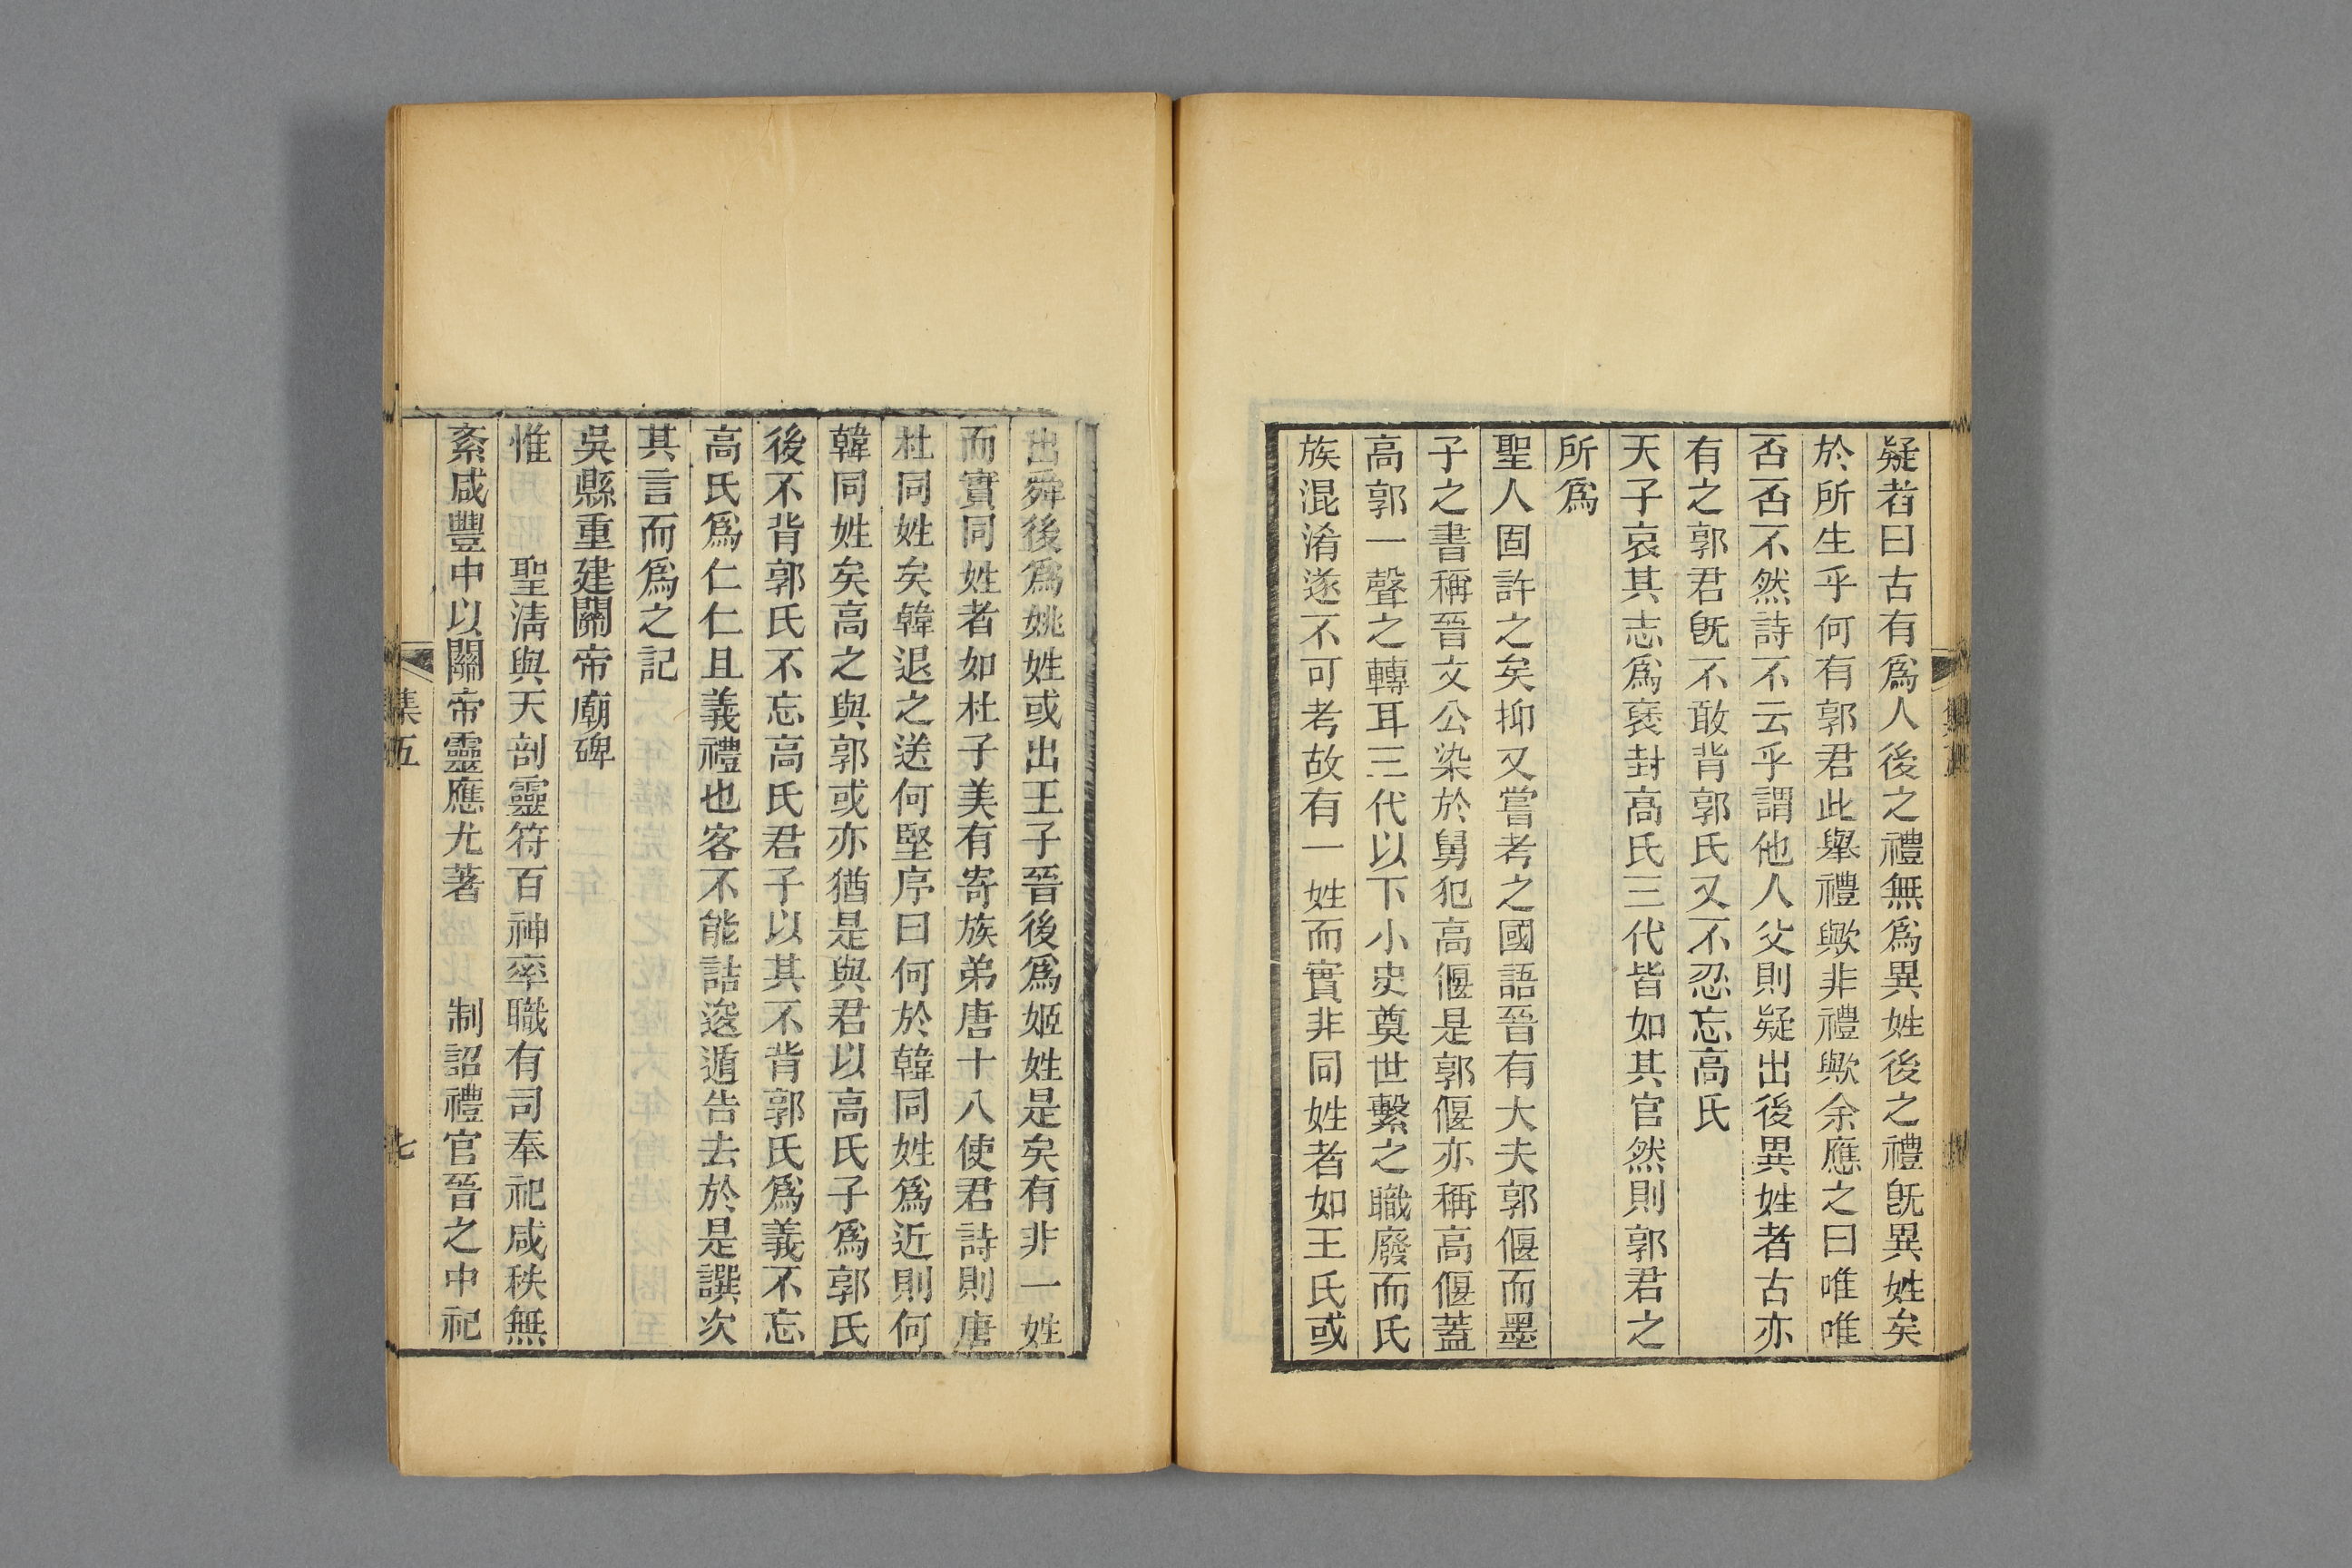 疑者曰古有爲人後之禮無爲異姓後之禮旣異姓矣
於所生乎何有郭君此舉禮歟非禮歟余應之曰唯唯
否否不然詩不云乎謂他人父則疑出後異姓者古亦
有之郭君旣不敢背郭氏又不忍忘高氏
天子哀其志爲襃封高氏三代皆如其官然則郭君之
所爲
聖人固許之矣抑又嘗考之國語晉有大夫郭偃而墨
子之書稱晉文公染於舅犯高偃是郭偃亦稱高偃蓋
高郭一聲之轉耳三代以下小史奠世繫之職廢而氏
族混淆遂不可考故有一姓而實非同姓者如王氏或
出舜後爲姚姓或出王子晉後爲姬姓是矣有非一姓
而實同姓者如杜子美有寄族弟唐十八使君詩則唐
杜同姓矣韓退之送何堅序曰何於韓同姓爲近則何
韓同姓矣高之與郭或亦猶是與君以高氏子爲郭氏
後不背郭氏不忘高氏君子以其不背郭氏爲義不忘
高氏爲仁仁且義禮也客不能詰逡遁告去於是譔次
其言而爲之記
吳縣重建關帝廟碑
惟 聖淸與天剖靈符百神率職有司奉祀咸秩無
紊咸豐中以關帝靈應尤著 制詔禮官晉之中祀
集五
七